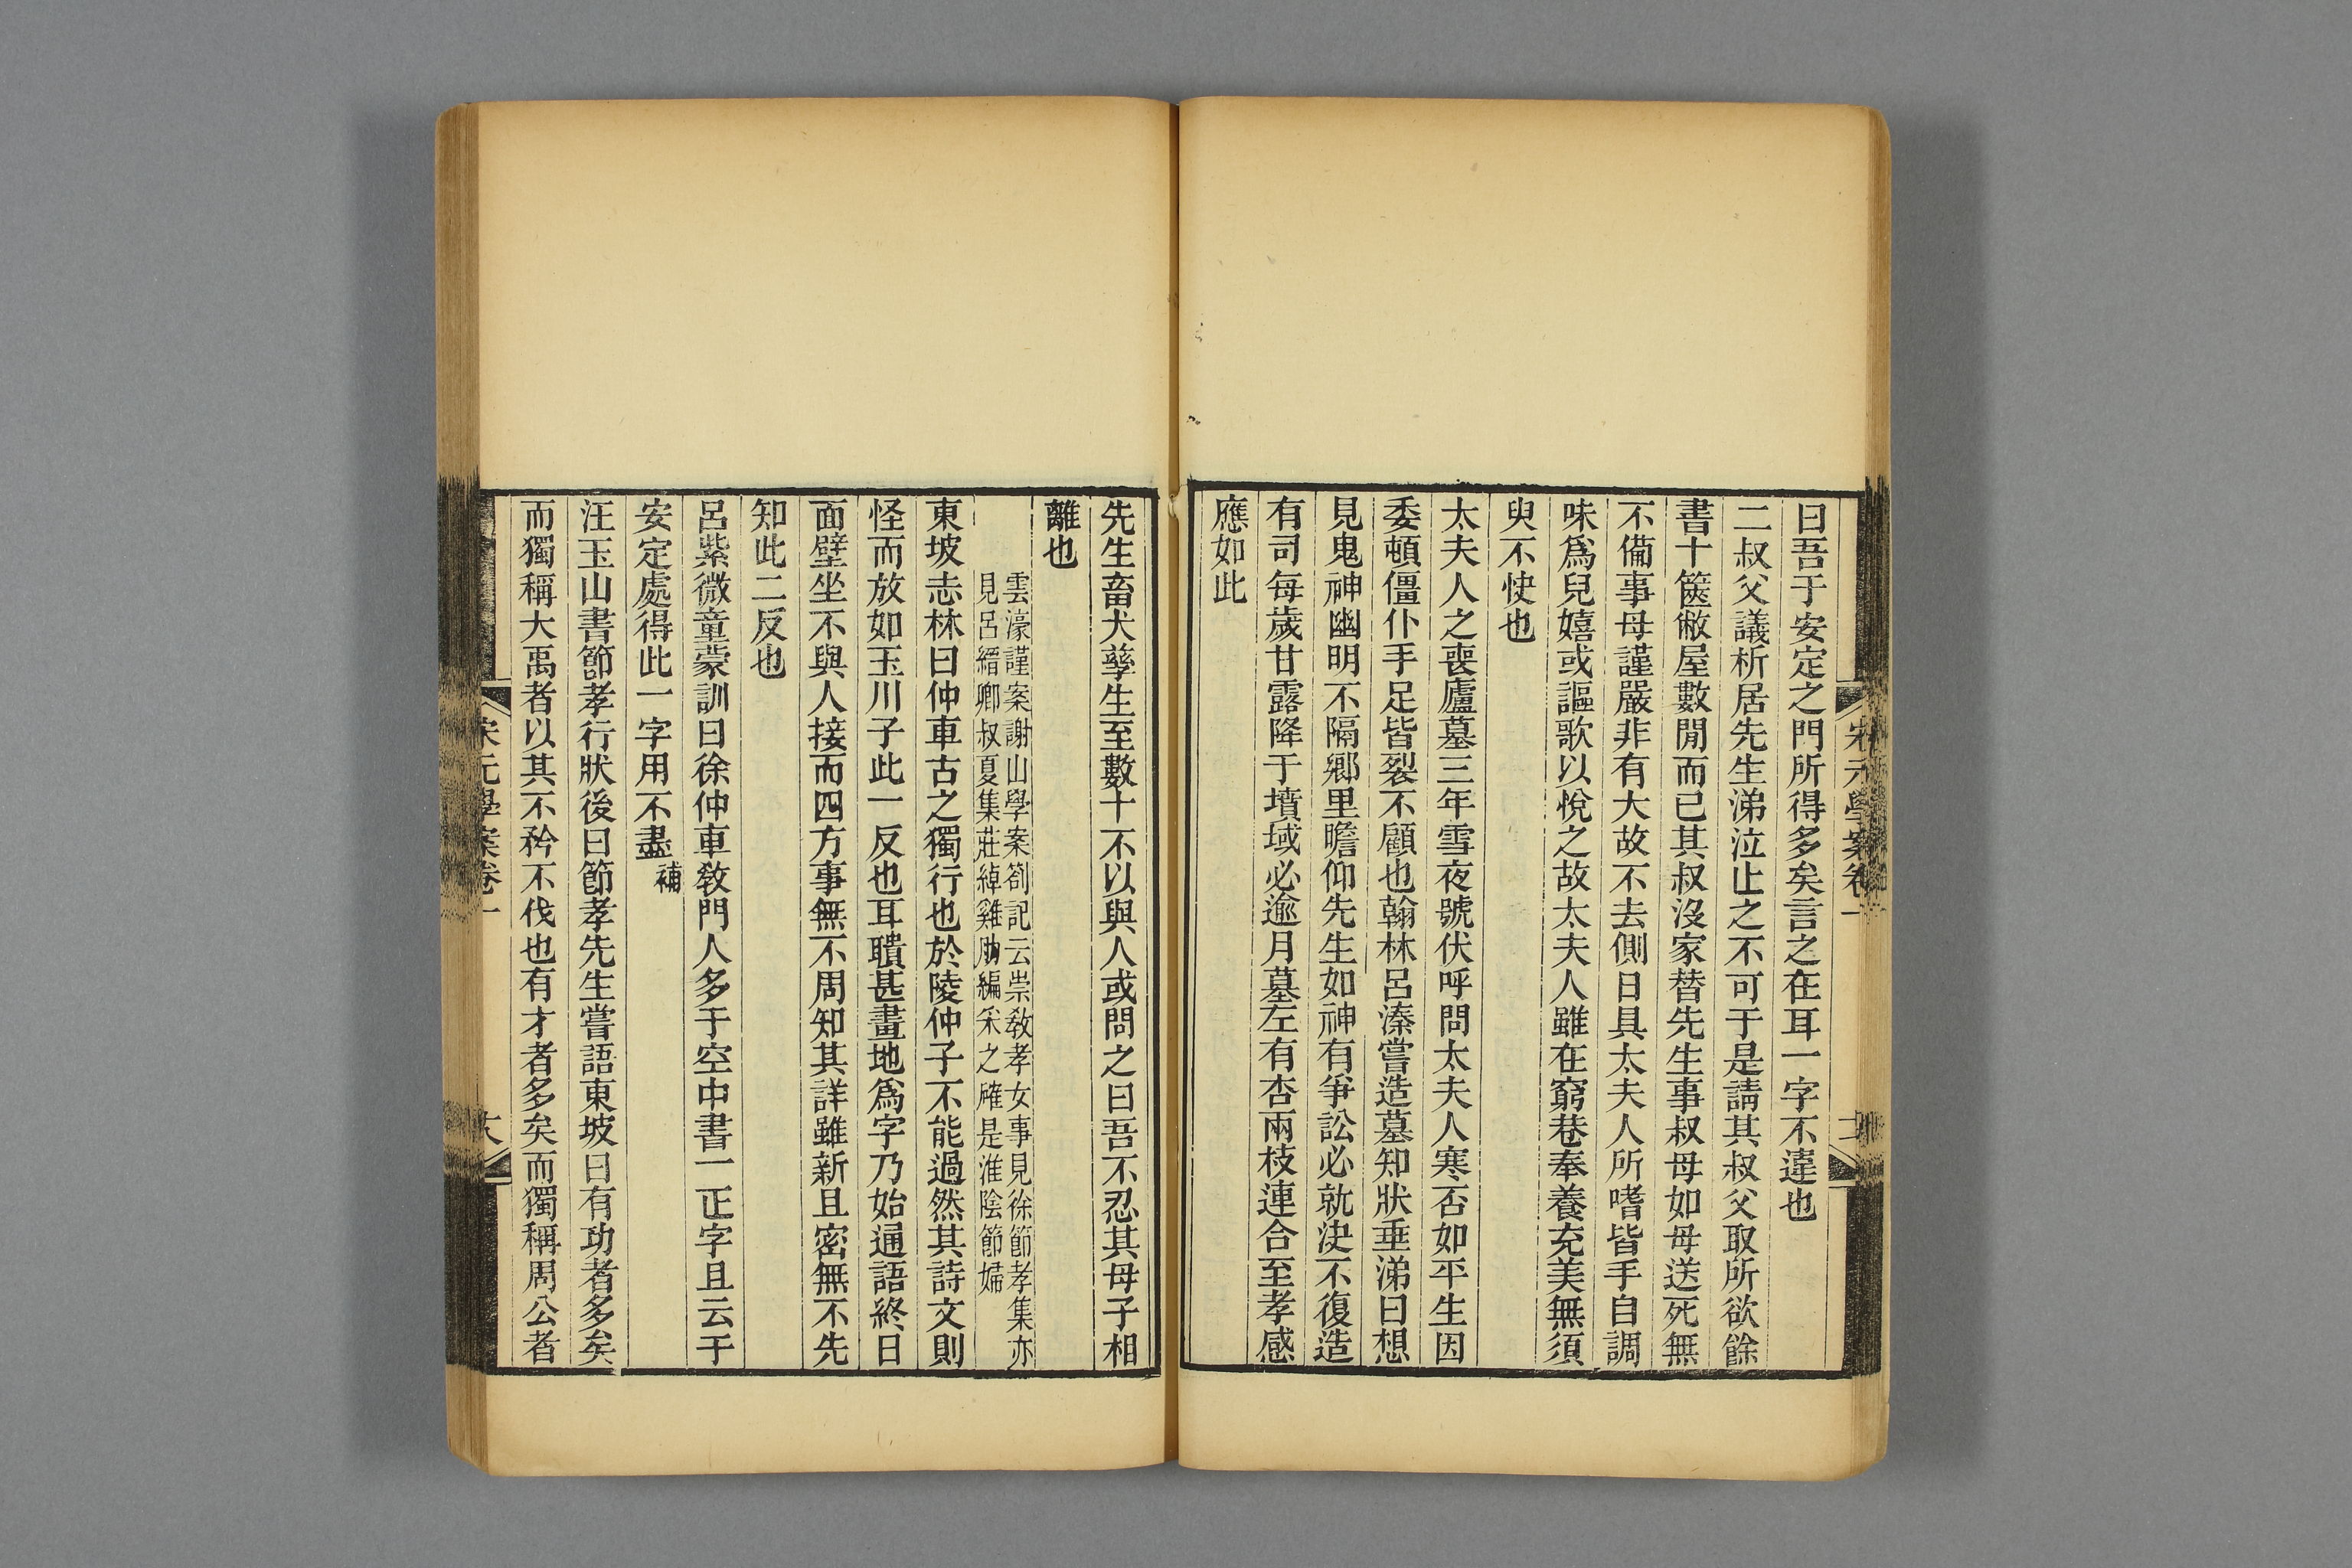 宋元學案卷一
曰吾于安定之門所得多矣言之在耳一字不違也
二叔父議析居先生涕泣止之不可于是請其叔父取所欲餘
書十篋敝屋數閒而已其叔沒家替先生事叔母如母送死無
不備事母謹嚴非有大故不去側日具太夫人所嗜皆手自調
味爲兒嬉或謳歌以悅之故太夫人雖在窮巷奉養充美無須
臾不快也
太夫人之喪廬墓三年雪夜號伏呼問太夫人寒否如平生因
委頓僵仆手足皆裂不顧也翰林呂溱嘗造墓知狀垂涕曰想
見鬼神幽明不隔鄉里瞻仰先生如神有爭訟必就決不復造
有司每歲甘露降于墳域必逾月墓左有杏兩枝連合至孝感
應如此
先生畜犬孳生至數十不以與人或問之曰吾不忍其母子相
離也
雲濠謹案謝山學案劄記云崇敎孝女事見徐節孝集亦
見呂縉卿叔夏集莊綽雞肋編采之確是淮陰節婦
東坡志林曰仲車古之獨行也於陵仲子不能過然其詩文則
怪而放如玉川子此一反也耳聵甚畫地爲字乃始通語終日
面壁坐不與人接而四方事無不周知其詳雖新且密無不先
知此二反也
呂紫微童蒙訓曰徐仲車敎門人多于空中書一正字且云于
安定處得此一字用不盡補
汪玉山書節孝行狀後曰節孝先生嘗語東坡曰有功者多矣
而獨稱大禹者以其不矜不伐也有才者多矣而獨稱周公者
宋元學案卷一